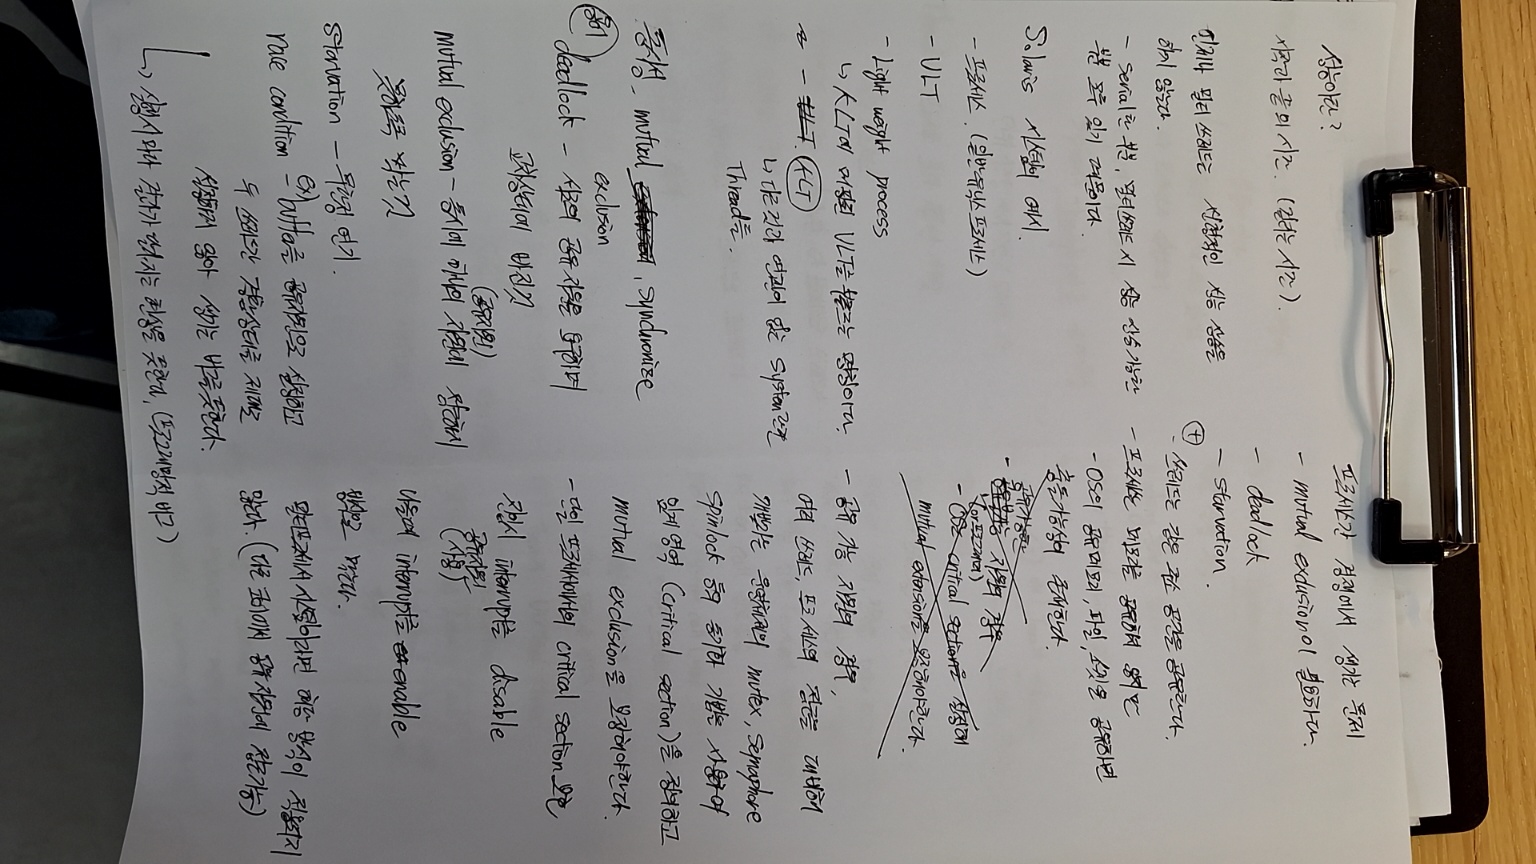 성능이란?
시작과 끝의 시간. (걸리는 시간).
언제나 멀티 쓰레드는 선형적인 성능 상승을
하지 않는다.
- Serial한 부분, 멀티쓰레드 시 성능 상승 가능한
부분 모두 있기 때문이다.
Solaris 시스템의 예시.
- 프로세스. (일반 유닉스 프로세스)
- ULT
- Light weight process
↳ KLT에 매핑된 ULT를 부르는 명칭이다.
- ULT. KLT
↳ 다른것과 연관이 없는 System
Thread들.
동시성, mutual , synchronize
exclusion
용어
deadlock - 서로의 공유 자원을 요구하며
교착상태에 빠진것
(공유자원)
mutual exclusion - 동시에 하나의 자원에 접근하지
못하도록 막는것
starvation - 무한정 연기.
race condition - ex) buffer를 공유자원으로 설정하고
두 쓰레드간 경합상태를 제대로
설정하지 않아 생기는 버그를 뜻한다.
↳ 실행시 마다 결과가 달라지는 현상을 뜻한다. (프로그래밍적 버그)
프로세스간 경쟁에서 생기는 문제
- mutual exclusion이 필요하다.
- deadlock
- starvation.
+
- 쓰레드는 같은 주소 공간을 공유한다.
- 프로세스는 메모리를 공유하지 않지만
- OS의 공유메모리, 파일, 소켓을 공유하면
충돌가능성이 존재한다.
공유가능한
- 공유불가능 자원의 경우
(or 프로그래머)
- OS는 critical section을 설정해
mutual extension을 보장해야한다.
- 공유 가능 자원의 경우,
여러 쓰레드, 프로세스의 접근을 대비해
개발자는 운영체제의 mutex, semaphore
spinlock 등의 동기화 기법을 사용하여
임계영역 (critical section)을 정의하고
mutual exclusion을 보장해야한다.
- 단일 프로세서에서의 critical section 보호
진입시 interrupt를 disable
공유자원
(사용)
나올때 interrupt를 enable
방식으로 막는다.
멀티프로세서 시스템이라면 해당 방식이 적용되지
않는다. (다른 코어에서 공유 자원에 접근 가능)